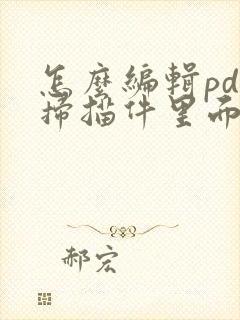 怎麼編輯pd
掃描件里
郝宏